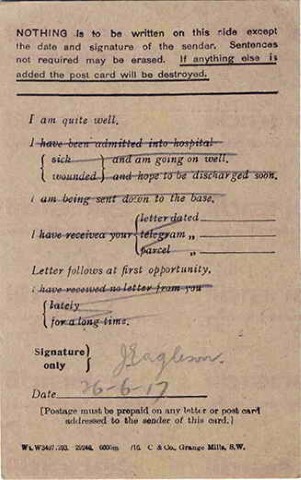 NOTHING is to be written on this side except
the date and signature of the sender. Sentences
not required may be erased. If anything else is
added the post card will be destroyed.
I am quite well.
I have been admitted into hospital
{ sick } and am going on well.
{ wounded } and hope to be discharged soon.
I am being sent down to the base.
{ letter dated
I have received your { telegram „
{ parcel „
Letter follows at first opportunity.
I have received no letter from you
{ lately
{ for a long time.
Signature }
only } J Eagleson.
Date 26-6-17
[Postage must be prepaid on any letter or post card
addressed to the sender of this card.]
6000m C & Co., Grange Mills, S.W.